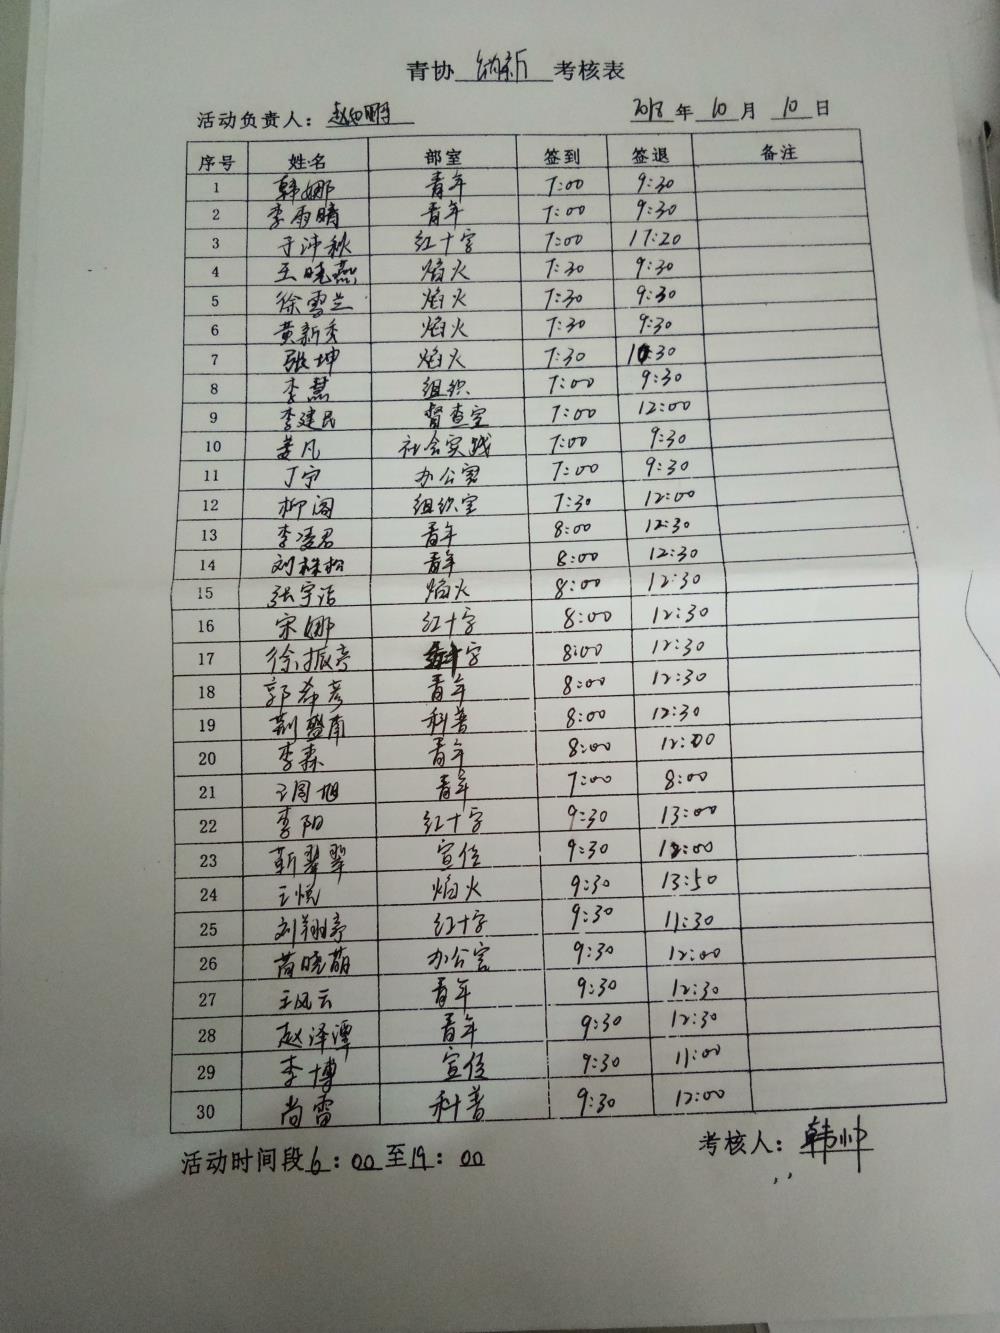 青协 纳新 考核表
活动负责人： 2018 年 10 月 10 日
序号 姓名 部室 签到 签退 备注
1 韩娜 青年 7:00 9:30
2 李雨晴 青年 7:00 9:30
3 于沛秋 红十字 7:00 17:20
4 王晓燕 焰火 7:30 9:30
5 徐雪兰 焰火 7:30 9:30
6 黄新秀 焰火 7:30 9:30
7 张坤 焰火 7:30 10:30
8 李慧 组织 7:00 9:30
9 李建民 督查室 7:00 12:00
10 姜凡 社会实践 7:00 9:30
11 丁宁 办公室 7:00 9:30
12 柳阁 组织室 7:30 12:00
13 李凌君 青年 8:00 12:30
14 刘栋松 青年 8:00 12:30
15 张宇洁 焰火 8:00 12:30
16 宋娜 红十字 8:00 12:30
17 徐振亭 字 8:00 12:30
18 郭希彦 青年 8:00 12:30
19 荆盛南 科普 8:00 12:30
20 李森 青年 8:00 12:00
21 王周旭 青年 7:00 8:00
22 李阳 红十字 9:30 13:00
23 靳翠翠 宣传 9:30 12:00
24 王悦 焰火 9:30 13:50
25 刘翔亭 红十字 9:30 11:30
26 苗晓萌 办公室 9:30 12:00
27 王风云 青年 9:30 12:30
28 赵泽潭 青年 9:30 12:30
29 李博 宣传 9:30 11:00
30 尚雷 科普 9:30 12:00
活动时间段 6：00 至 19：00 考核人：韩帅